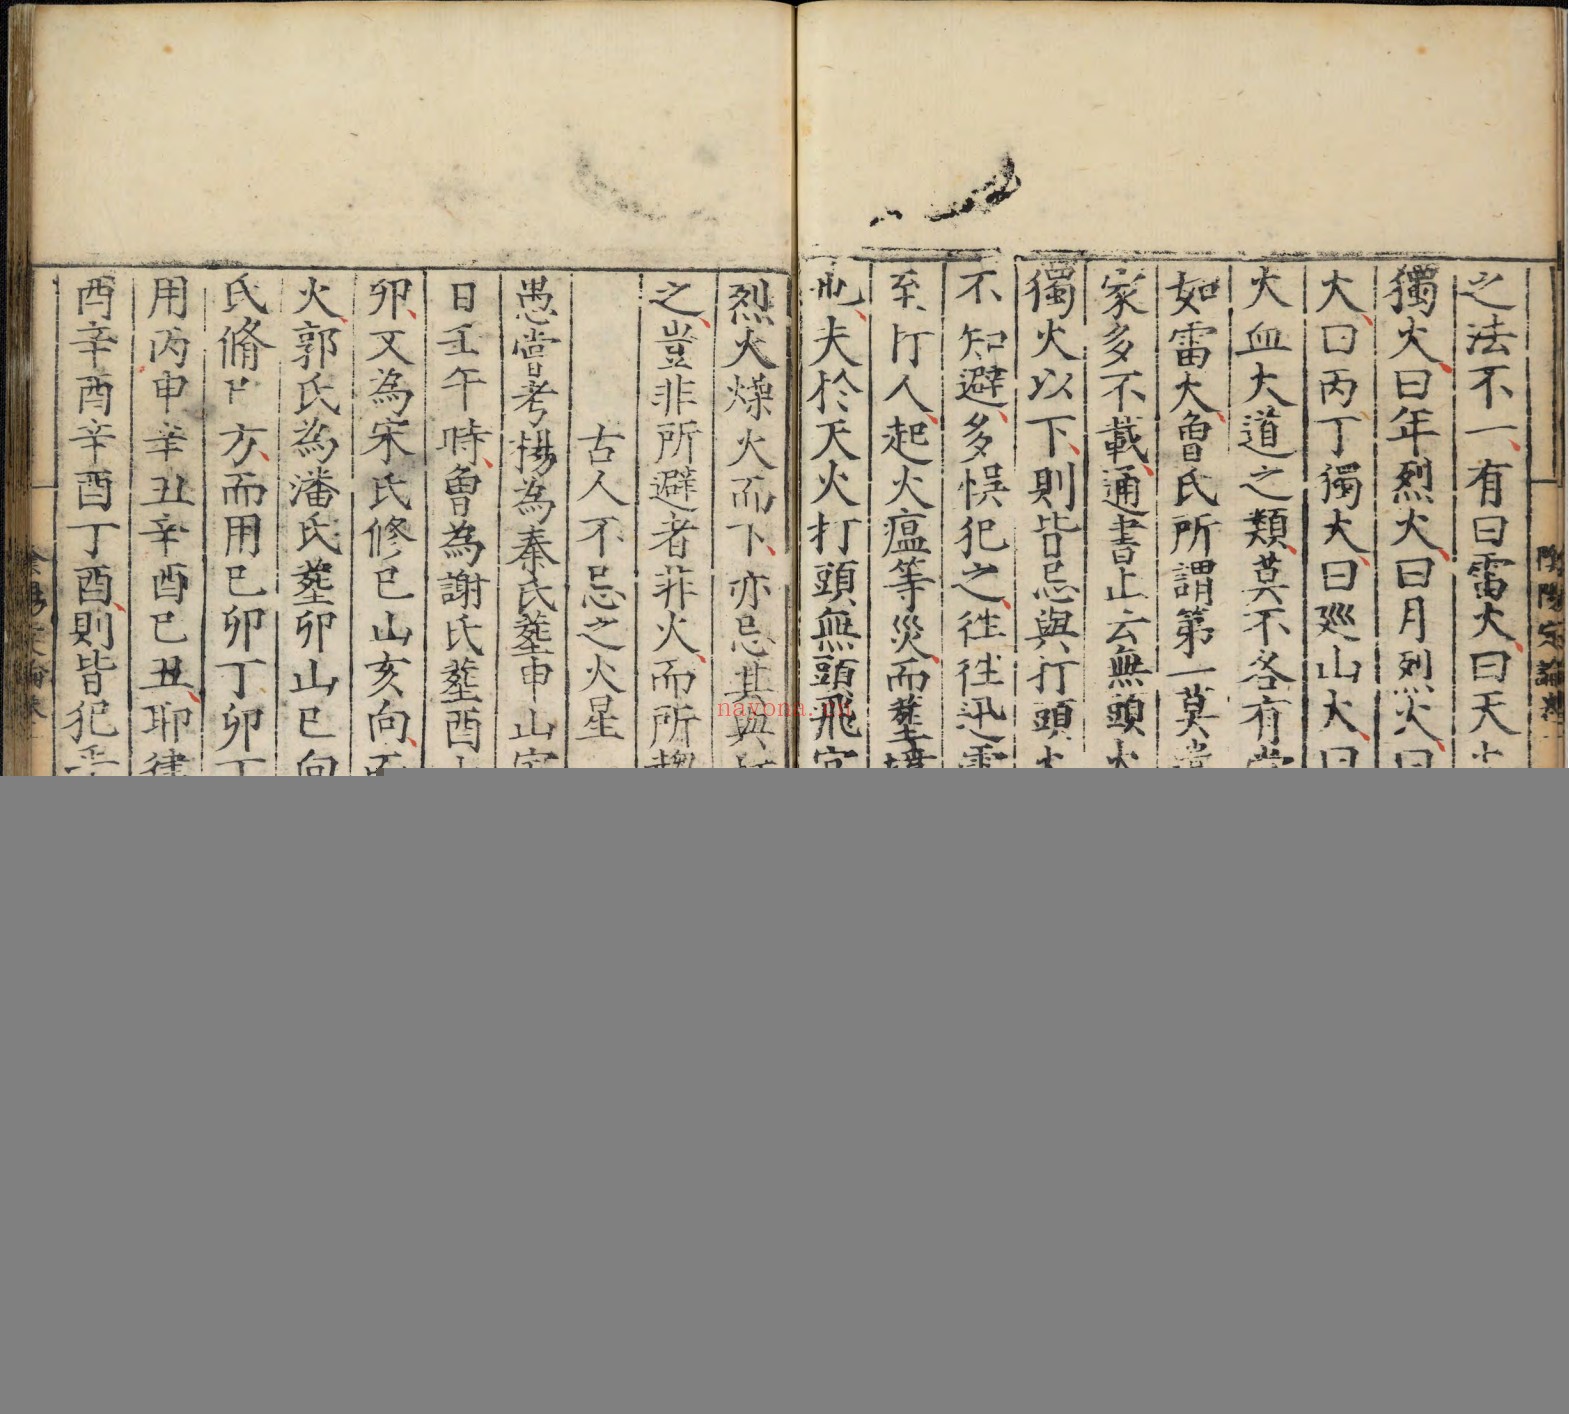 之法不一有曰雷火曰天火
獨火曰年烈火曰月烈火曰
火曰丙丁獨火曰廵山火曰
火血火道之類莫不各有
如雷火魯氏所謂第一莫
家多不載通書止云無頭火
獨火以下則皆忌與打頭火
不知避多悞犯之徃徃迅雷
至厅人起火瘟等災而塟
也夫於天火打頭無頭飛宮
烈火燥火而下亦忌其與
之豈非所避者非火而所趨
古人不忌之火星
愚嘗考楊為秦氏塟申山寅
日壬午時魯為謝氏塟酉山
卯又為宋氏修巳山亥向而
火郭氏為潘氏塟卯山巳向
氏脩方而用巳卯丁卯丁
用丙申辛丑辛酉巳丑耶
酉辛酉辛酉丁酉則皆犯
陰陽定論卷
nayona.cn